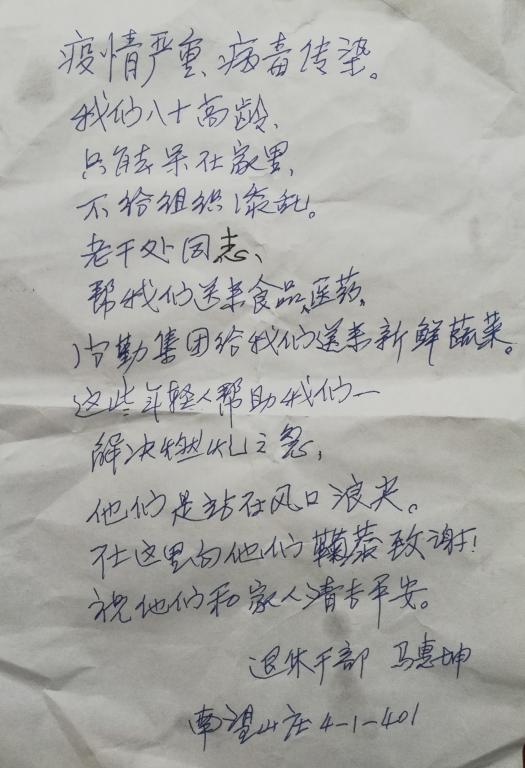 疫情严重、病毒传染。
我们八十高龄、
只能去呆在家里,
不给组织添乱。
老干处同志、
帮我们送来食品、医药,
后勤集团给我们送来新鲜蔬菜。
这些年轻人帮助我们一
解决燃眉之急,
他们是站在风口浪尖。
在这里向他们鞠躬致谢!
祝他们和家人清吉平安。
退休干部 马惠坤
南望山庄4-1-401